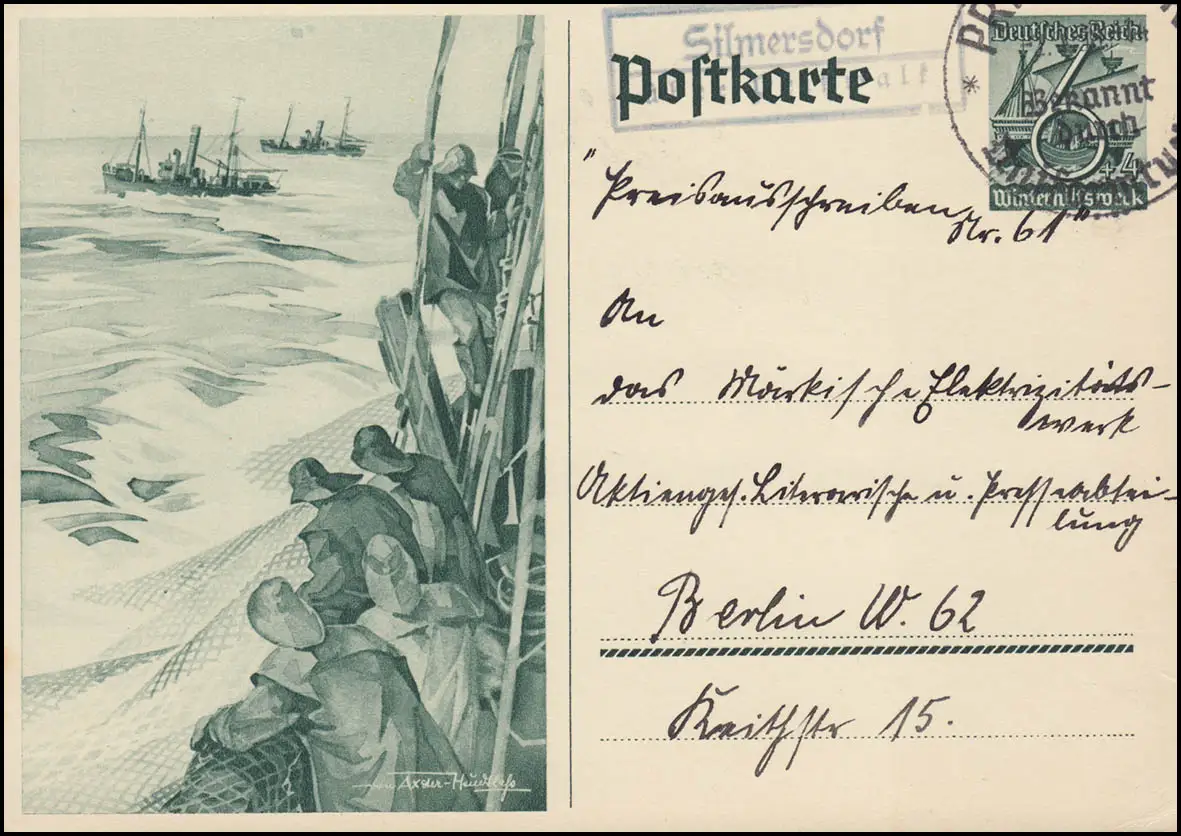 Silmersdorf
Postkarte
Deutsches Reich
6
+4
Winterhilfswerk
Bekannt
durch
"Preisausschreiben
Nr. 61"
An
das Märkische Elektrizitäts-
werk
Aktienges. Literarische u. Presseabtei-
lung
Berlin W. 62
Keithstr 15.
von Axster-Heudtlaß